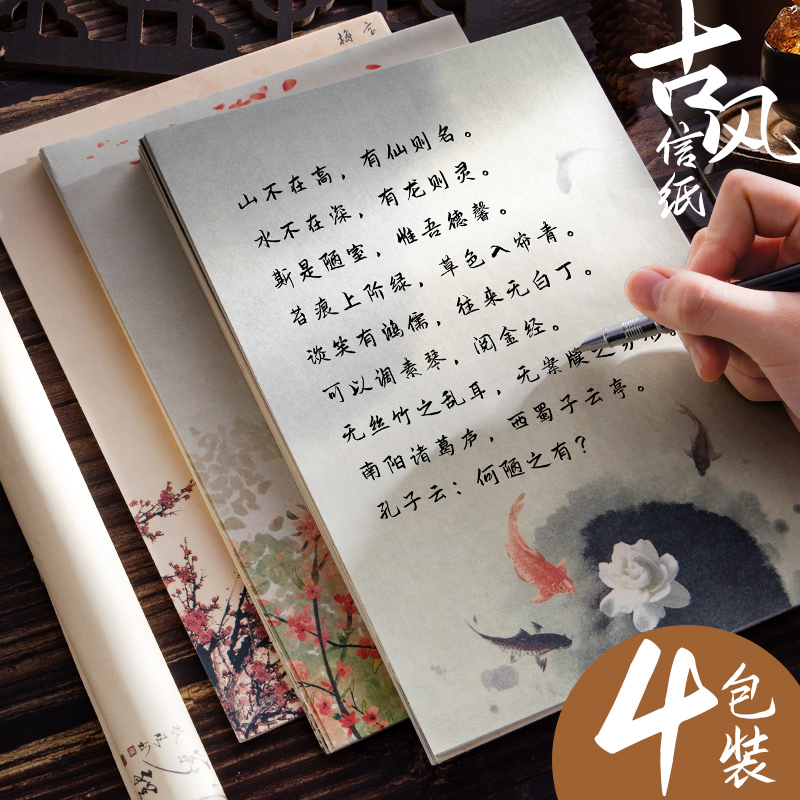 古风
信纸
山不在高，有仙则名。
水不在深，有龙则灵。
斯是陋室，惟吾德馨。
苔痕上阶绿，草色入帘青。
谈笑有鸿儒，往来无白丁。
可以调素琴，阅金经。
无丝竹之乱耳，无案牍之劳形。
南阳诸葛庐，西蜀子云亭。
孔子云：何陋之有？
4包装